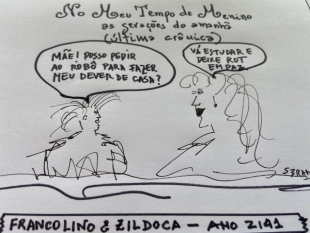 No Meu Tempo de Menino
as gerações do amanhã
(última crônica)
MÃE! POSSO PEDIR
AO ROBÔ PARA FAZER
MEU DEVER DE CASA?
VÁ ESTUDAR E
DEIXE ROT
EM PAZ
FRANCOLINO & ZILDOCA - ANO 2141